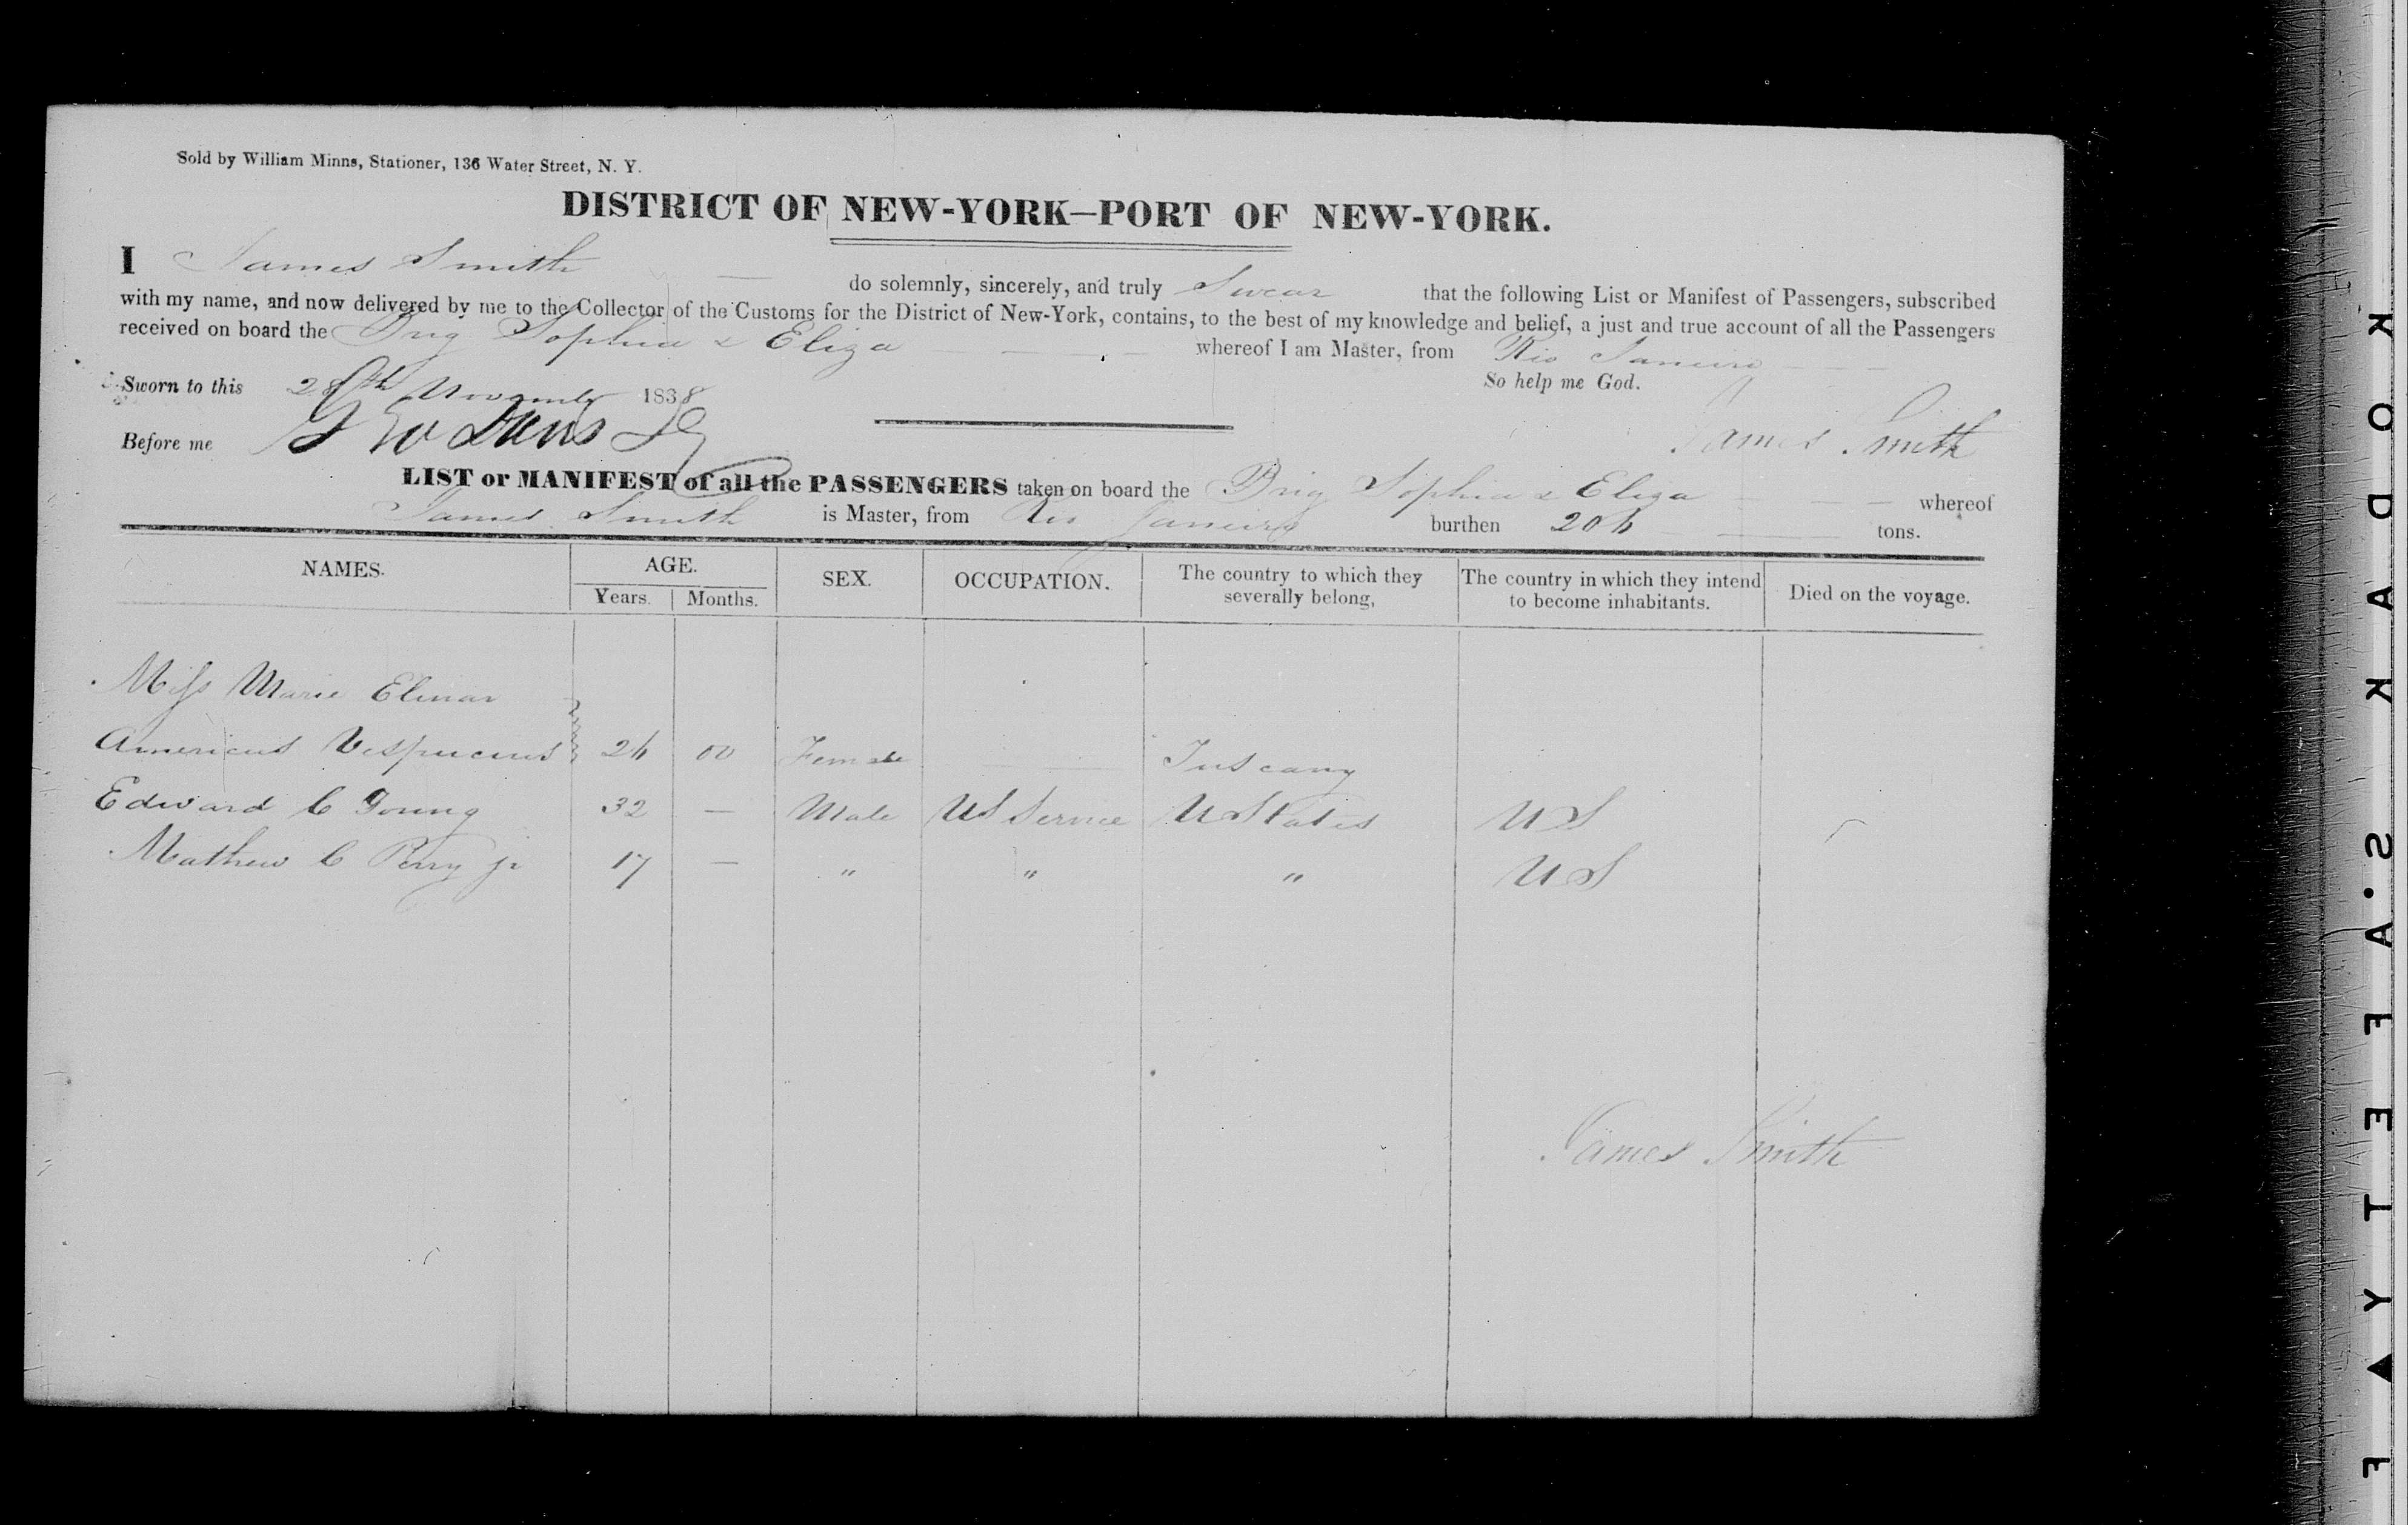 Sold by William Minns, Stationer, 136 Water Street, N. Y.
DISTRICT OF NEW-YORK—PORT OF NEW-YORK.
I James Smith — do solemnly, sincerely, and truly Swear that the following List or Manifest of Passengers, subscribed
with my name, and now delivered by me to the Collector of the Customs for the District of New-York, contains, to the best of my knowledge and belief, a just and true account of all the Passengers
received on board the Brig Sophia & Eliza whereof I am Master, from Rio Janeiro
So help me God.
Sworn to this 28th November 1838
James Smith
Before me
LIST or MANIFEST of all the PASSENGERS taken on board the Brig Sophia & Eliza whereof
James Smith is Master, from Rio Janeiro burthen 206 tons.
NAMES. AGE. SEX. OCCUPATION. The country to which they severally belong, The country in which they intend to become inhabitants. Died on the voyage.
Years. Months.
Miss Marie
Americus Vespucius 26 00 Female — Tuscany
Edward C Young 32 — Male US Service U States US
Mathew C Perry jr 17 — " " " US
James Smith
KODAK S.A.F.E.T.Y ▲ F